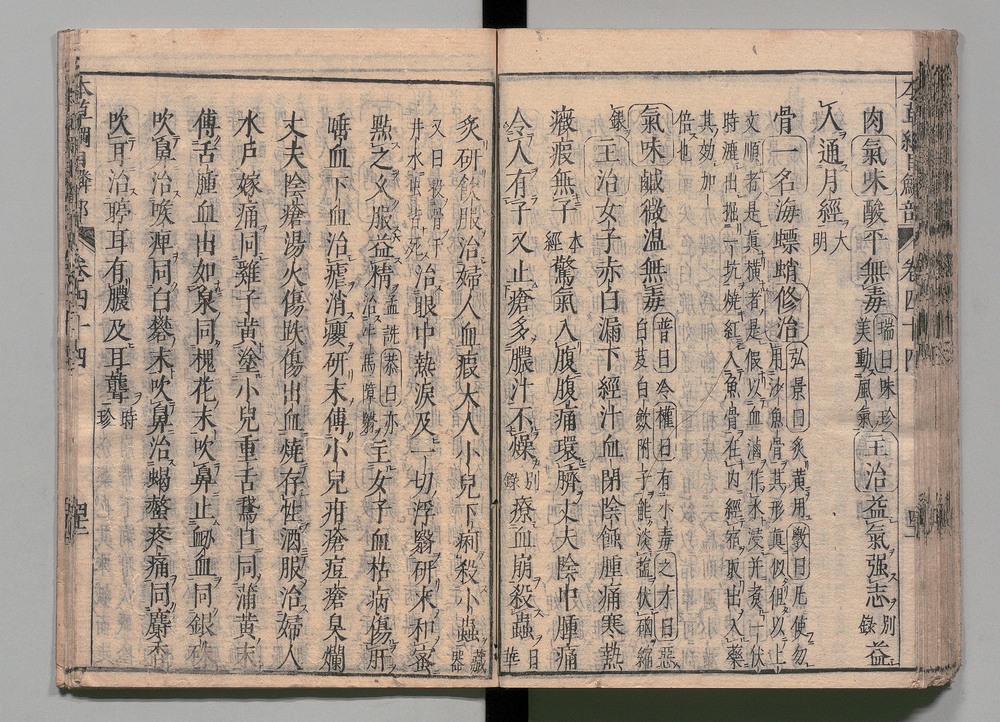 肉氣味酸平無毒瑞曰味珍美動風氣主治益氣强志別錄益
人通月經大明
骨一名海螵蛸修治弘景曰炙黃用斅曰凡使勿用沙魚骨其形眞似但以上
文順者是眞橫者是假以血滷作水浸并煮一伏
時漉出掘一坑燒紅入魚骨在內經宿取出入藥
其效加一
倍也
氣味鹹微溫無毒普曰冷權曰有小毒之才曰惡白芨白斂附子能淡鹽伏硇縮
銀主治女子赤白漏下經汁血閉陰蝕腫痛寒熱
癥瘕無子本經驚氣入腹腹痛環臍丈夫陰中腫痛
令人有子又止瘡多膿汁不燥別錄療血崩殺蟲日華
炙研飲服治婦人血瘕大人小兒下痢殺小蟲藏器
又曰投骨于井水蟲皆死治眼中熱淚及一切浮翳研末和蜜
點之久服益精孟詵恭曰亦治牛馬障翳主女子血枯病傷肝
唾血下血治瘧消癭研末傅小兒疳瘡痘瘡臭爛
丈夫陰瘡湯火傷跌傷出血燒存性酒服治婦人
水戶嫁痛同雞子黃塗小兒重舌鵞口同蒲黃末
傅舌腫血出如泉同槐花末吹鼻止衂血同銀硃
吹鼻治喉痺同白礬末吹鼻治蝎螫疼痛同麝香
吹耳治聤耳有膿及耳聾時珍
本草綱目鱗部 卷四十四